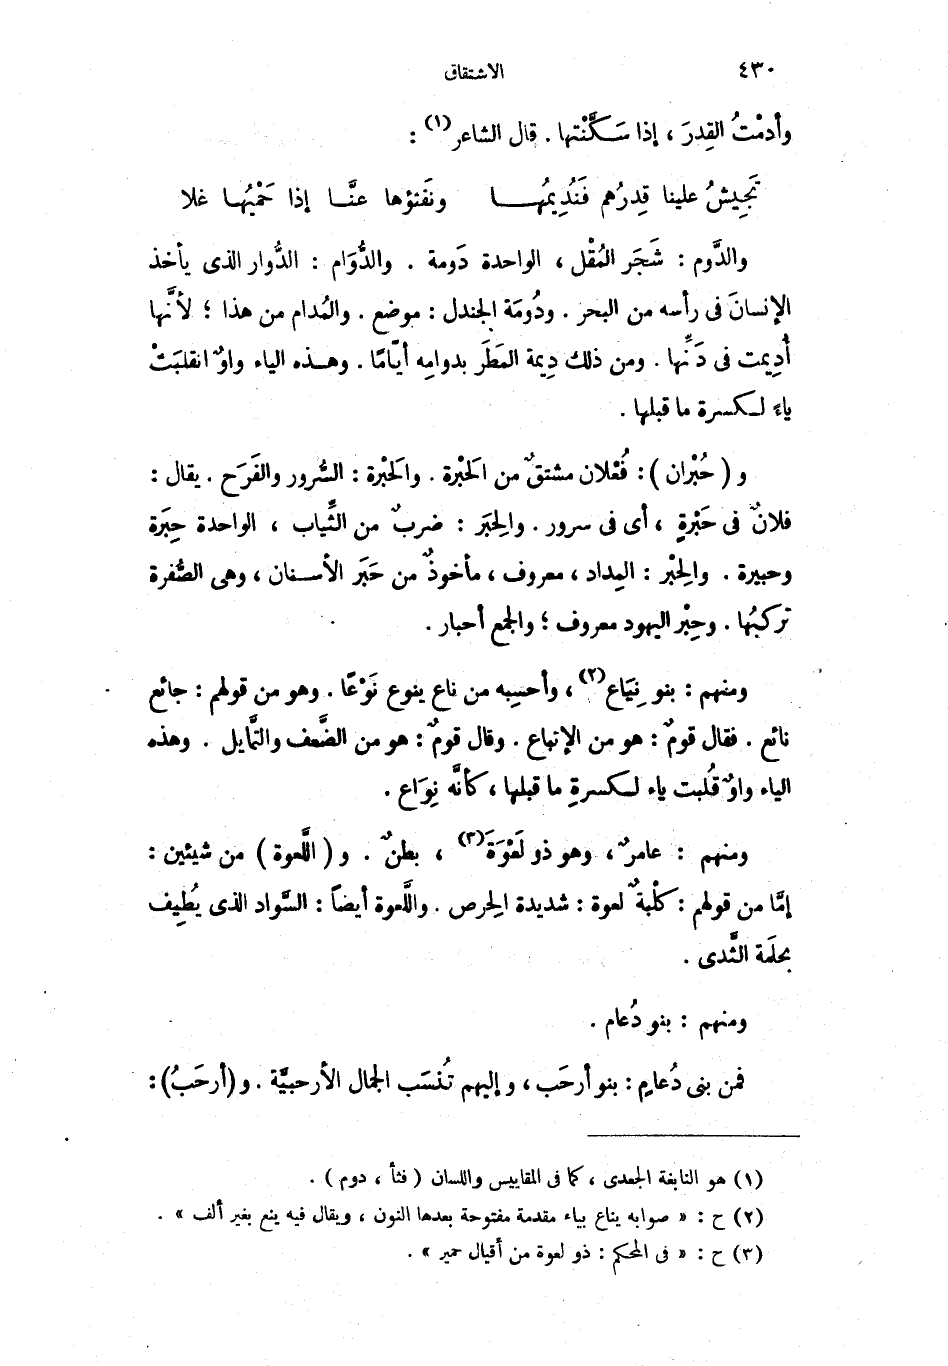 ٤٣٠ الاشتقاق
وأدمْتُ القِدرَ ، إذا سَكَّنْتها . قال الشاعر (١) :
تَجِيشُ علينا قِدرُهم فَنُدِيمُها ونَفثؤها عنَّا إذا حَمْيُها غلا
والدَّوم : شَجَر المُقْل ، الواحدة دَومة . والدُّوَام : الدُّوار الذى يأخذ
الإنسانَ فى رأسه من البحر . ودُومَة الجندل : موضع . والمُدام من هذا ؛ لأنَّها
أُدِيمت فى دَنِّها . ومن ذلك دِيمة المَطَر بدوامِه أيّامًا . وهذه الياء واوٌ انقلبَتْ
ياءً لكسرة ما قبلها .
و ( حُبْران ) : فُعْلان مشتقٌ من الحَبْرة . والحَبْرة : السُّرور والفَرَح . يقال :
فلانٌ فى حَبْرةٍ ، أى فى سرور . والحِبَر : ضربٌ من الثِّياب ، الواحدة حِبَرة
وحبيرة . والحِبْر : المِداد ، معروف ، مأخوذٌ من حَبَر الأسنان ، وهى الصُّفرة
تركبُها . وحِبْر اليهود معروف ؛ والجمع أحبار .
ومنهم : بنو نِيَاع (٢) ، وأحسِبه من ناع ينوع نَوْعًا . وهو من قولهم : جائع
نائع . فقال قومٌ : هو من الإتباع . وقال قومٌ : هو من الضَّعف والتَّمايل . وهذه
الياء واوٌ قُلبت ياء لكسرةِ ما قبلها ، كأنَّه نِوَاع .
ومنهم : عامرٌ ، وهو ذو لَعْوَةَ (٣) ، بطنٌ . و ( اللَّعوة ) من شيئين :
إمَّا من قولهم : كلْبةٌ لعوة : شديدة الحِرص . واللَّعوة أيضاً : السَّواد الذى يُطِيف
بحلَمة الثَّدى .
ومنهم : بنو دُعام .
فمن بنى دُعامٍ : بنو أرحَب ، وإليهم تُنسَب الجمال الأرحبيَّة . و ( أرحَبُ ) :
(١) هو النابغة الجعدى ، كما فى المقاييس واللسان ( فثأ ، دوم ) .
(٢) ح : « صوابه يناع بياء مقدمة مفتوحة بعدها النون ، ويقال فيه ينع بغير ألف » .
(٣) ح : « فى المحكم : ذو لعوة من أقيال حمير » .